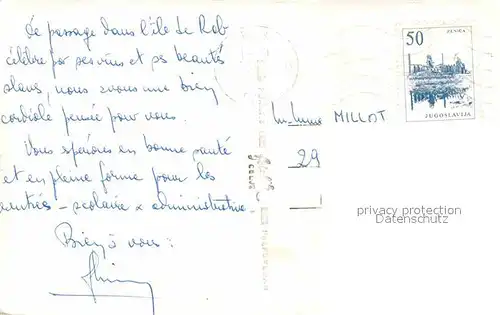 De passage dans l'île de Rab
célèbre par ses vins et ses beautés
slaves, nous avons une bien
cordiale pensée pour vous.
Vous espérons en bonne santé
et en pleine forme pour les
rentrées - scolaire & administrative
Bien à vous :
MILLOT
29
50
ZENICA
JUGOSLAVIJA
privacy protection
Datenschutz